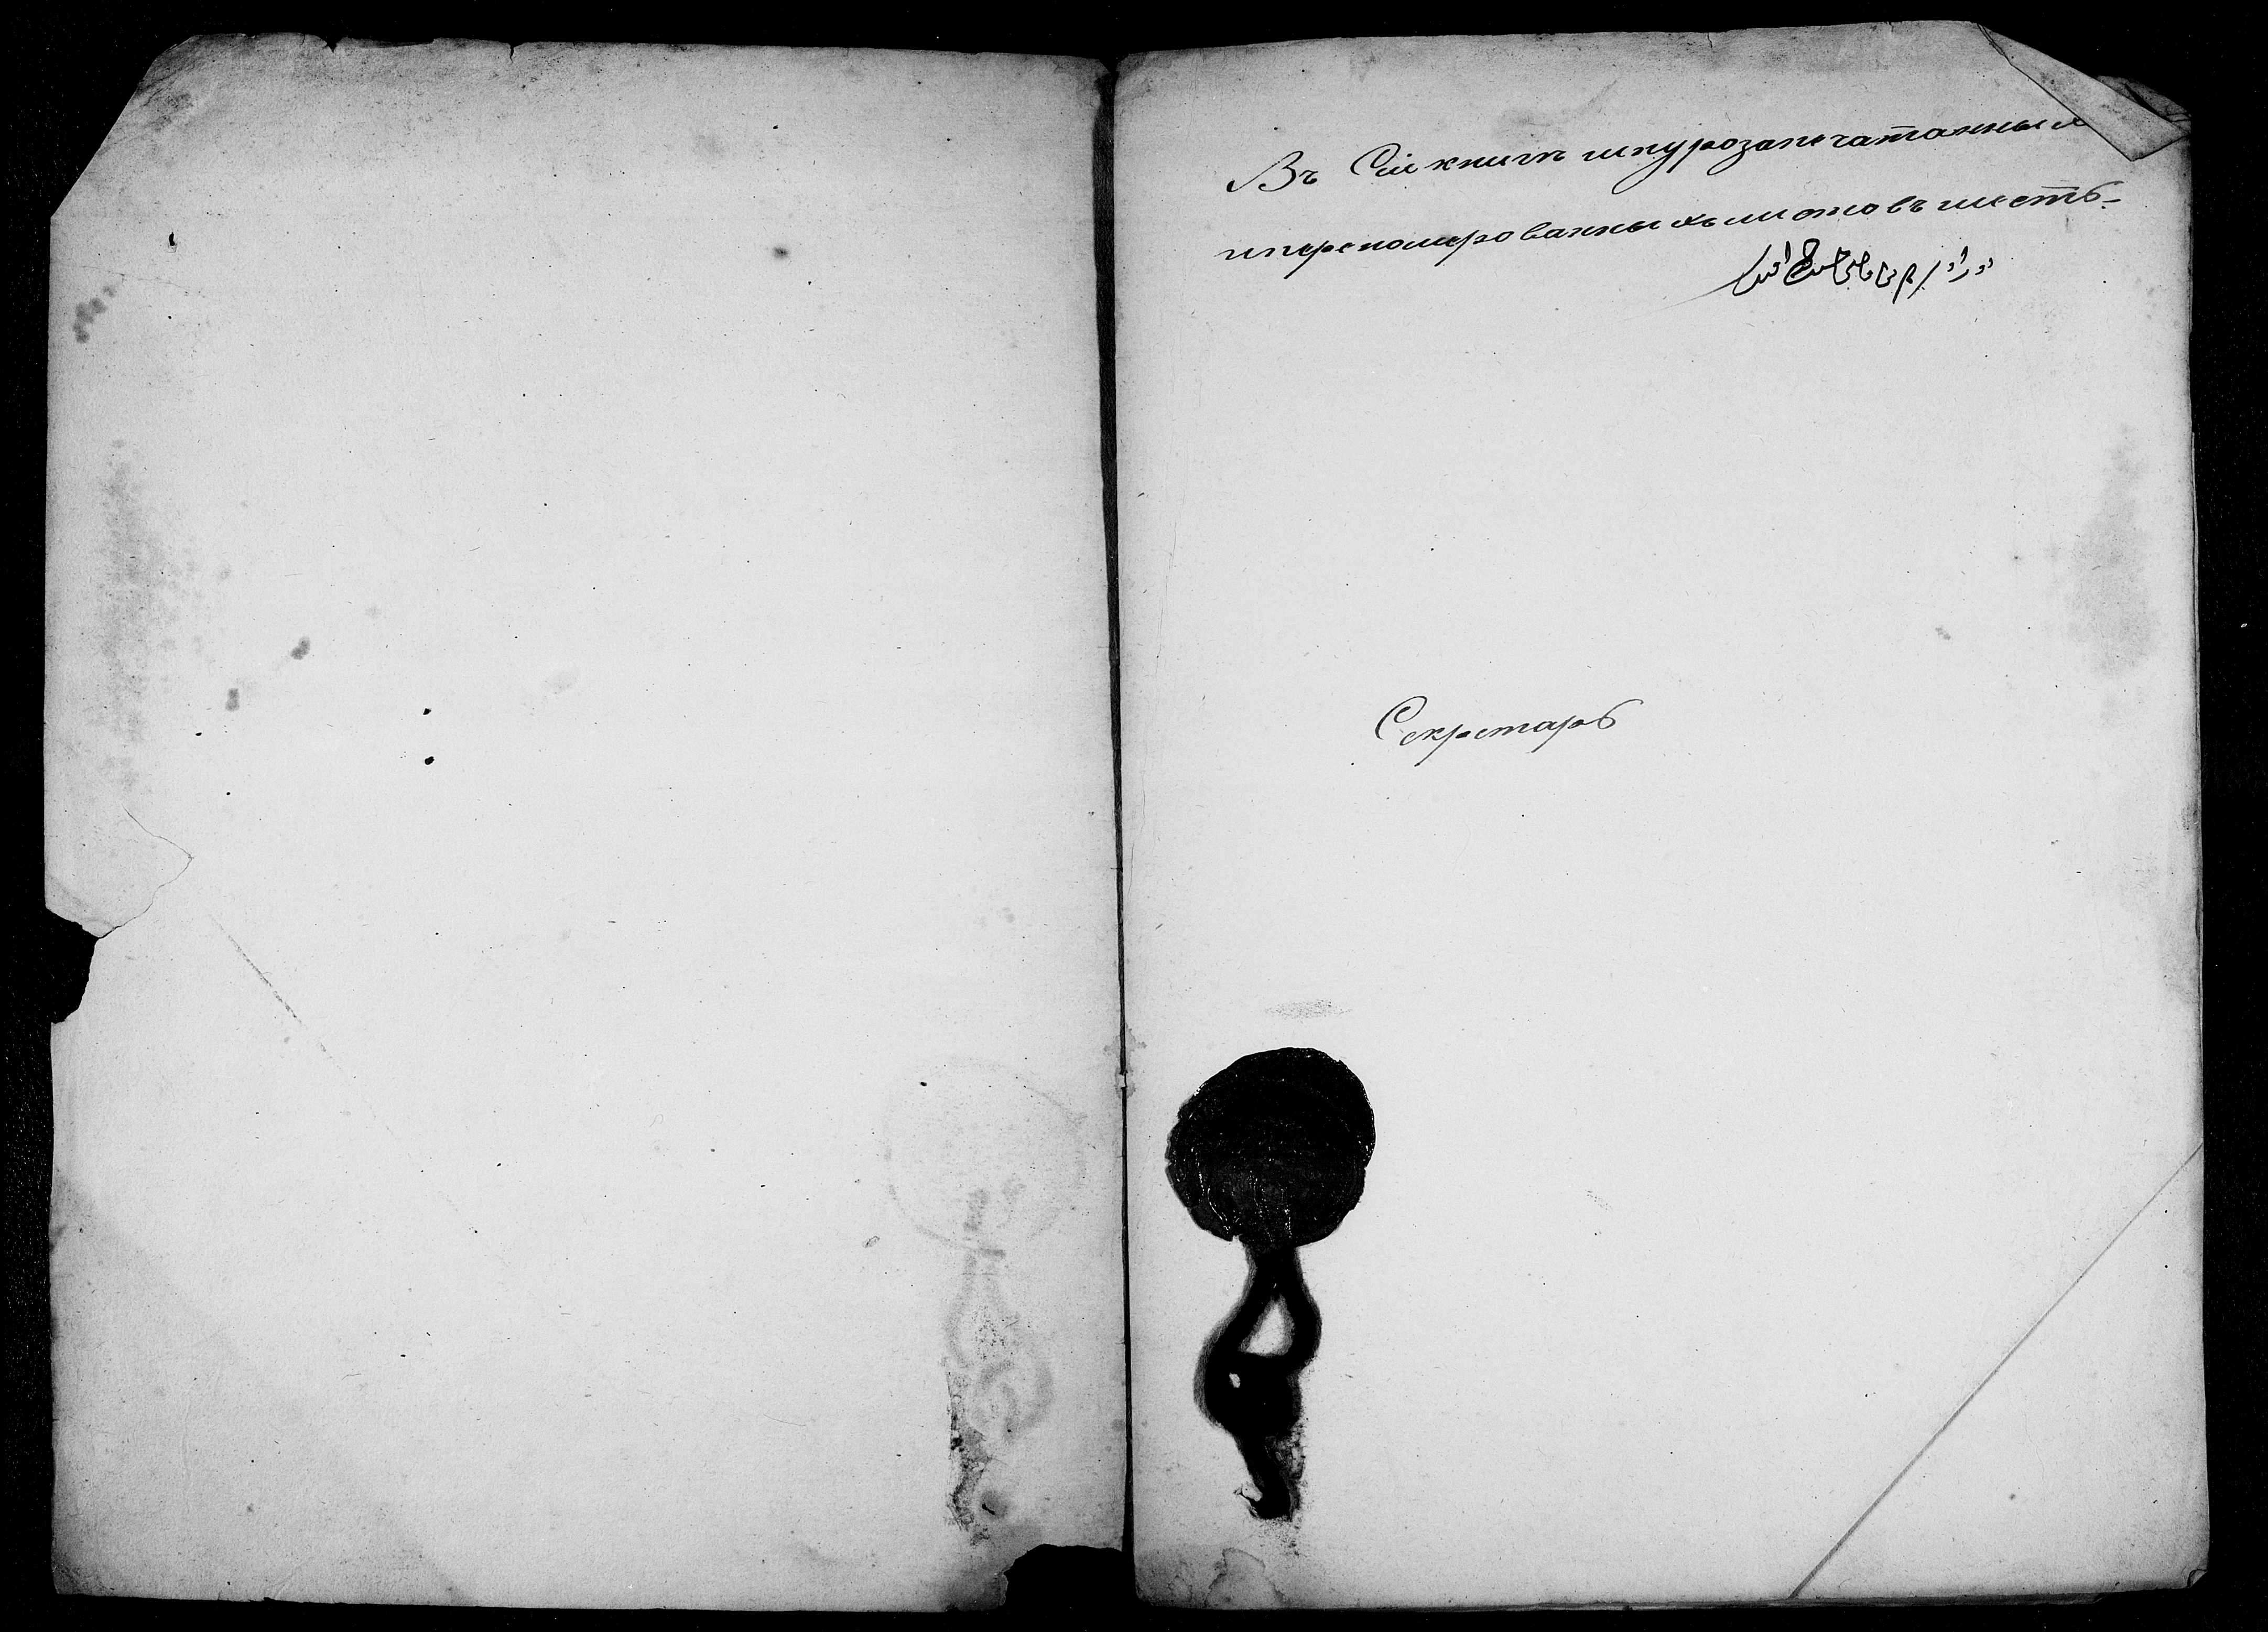 Въ Сей книгѣ шнурозапечатанныхъ
и перепомерованныхъ листовъ шесть
Секретарь